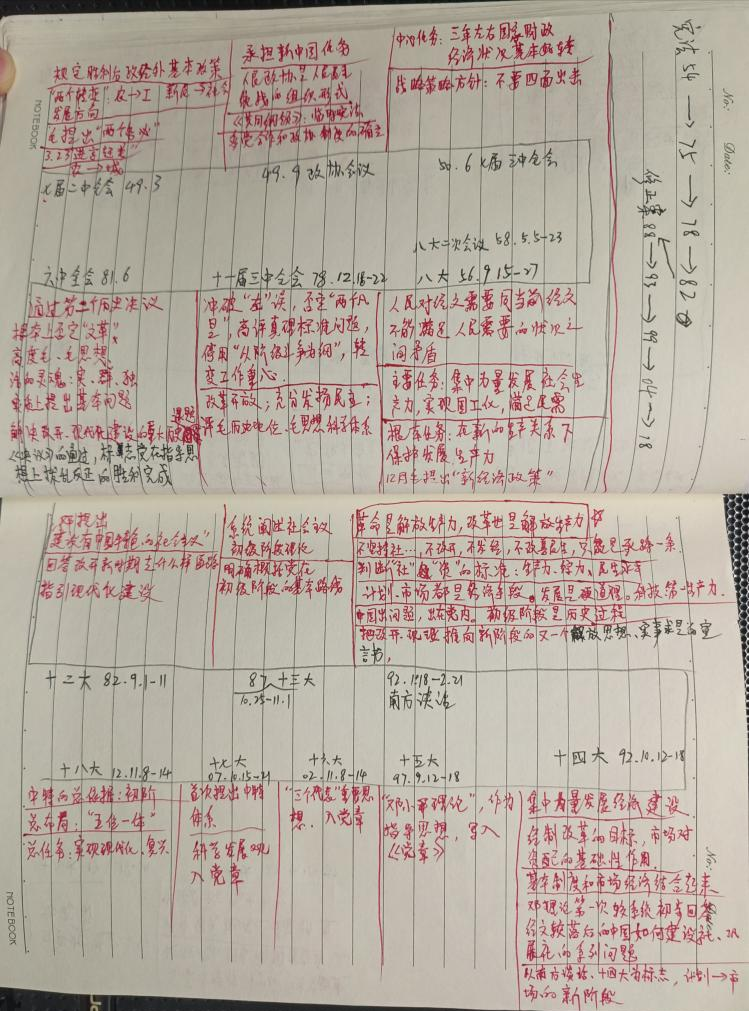 规定胜利后政经外基本政策
"两个转变":农→工 新民→社会
发展方向
毛提出"两个务必"
3.23"进京赶考"
农→城
七届二中全会 49.3
承担新中国任务
人民政协是人民民主
统战的组织形式
《共同纲领》:临时宪法
多党合作和政协制度的确立
49.9 政协会议
中心任务:三年左右国家财政
经济状况基本好转
战略策略方针:不要四面出击
50.6 七届三中全会
NOTEBOOK
No:
Date:
宪法54→75→78→82
修正案 88→93→99→04→18
八大二次会议 58.5.5-23
六中全会 81.6
十一届三中全会 78.12.18-22
八大 56.9 15-27
通过第二个历史决议
根本上否定"文革"
高度毛、毛思想
活的灵魂:实、群、独
课题
《决议》的通过,标志党在指导思
想上拨乱反正的胜利完成
冲破"左"误,否定"两个凡
是"高评真理标准问题,
停用"以阶级斗争为纲",转
变工作重心.
改革开放;充分发扬民主;
评毛历史地位、毛思想科学体系
人民对经文需要同当前经文
不能满足人民需要的状况之
间矛盾
主要任务:集中力量发展社会生
产力,实现国工化,满足民需
根本任务:在新的生产关系下
保护发展生产力
12月毛提出"新经济政策"
邓提出
建设有中国特色的社会主义"
回答改开新时期走什么样道路
指引现代化建设
系统阐述社会主义
初级阶段理论
明确概括党在
初级阶段的基本路线
革命是解放生产力,改革也是解放生产力
不坚持社…,不改开,不发经,不改善民生,只能是死路一条.
判断"社""资"的标准:生产力、综力、民生水平
计划、市场都是经济手段.发展是硬道理.科技第一生产力.
中国出问题,出在党内。初级阶段是历史过程
把改开、现建推向新阶段的又一个解放思想、实事求是的宣
言书,
十二大 82.9.1-11
87 十三大
10.25-11.1
92.1.18-2.21
南方谈话
十八大 12.11.8-14
十七大
07.10.15-21
十六大
02.11.8-14
十五大
97.9.12-18
十四大 92.10.12-18
中特的总依据:初阶
总布局:"五位一体"
总任务:实现现代化、复兴
首次提出中特
体系
科学发展观
入党章
"三个代表"重要思
想,入党章
"邓小平理论",作为
指导思想,写入
《党章》
集中力量发展经济建设
经制改革的目标,市场对
资配的基础性作用.
基本制度和市场经济结合起来
邓理论第一次较系统初步回答
经文较落后的中国如何建设社、巩
展社的系列问题
以南方谈话、十四大为标志,计划→市
场的新阶段
No:
NOTEBOOK